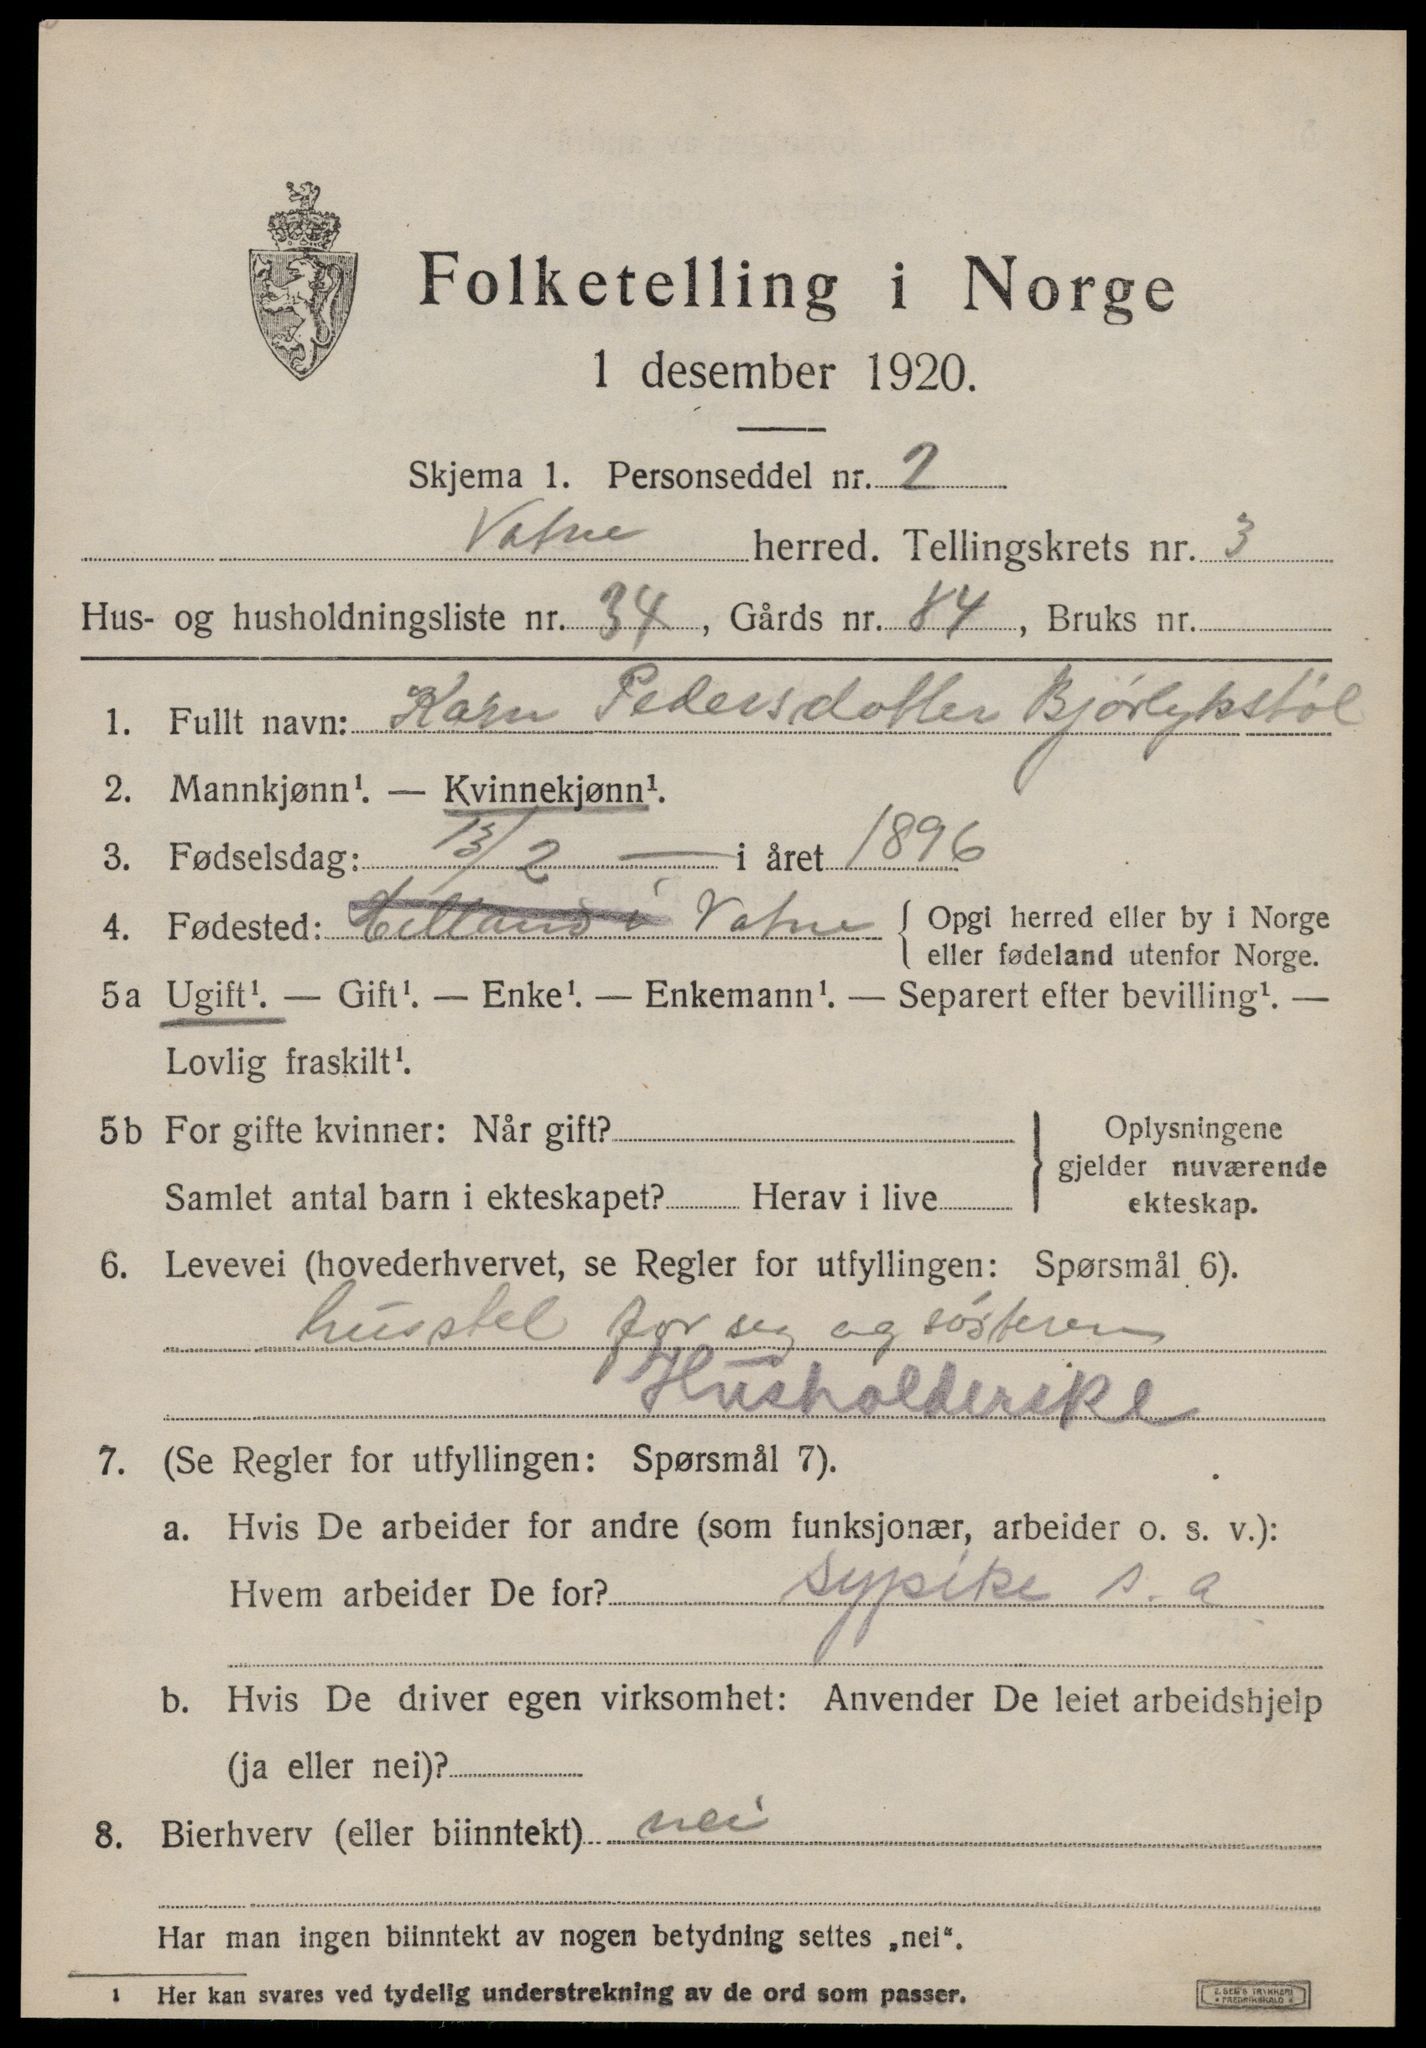 Folketelling i Norge
1 desember 1920.
Skjema 1. Personseddel nr. 2
Vatne herred. Tellingskrets nr. 3
Hus- og husholdningsliste nr. 34, Gårds nr. 84, Bruks nr.
1. Fullt navn: Karn Pedersdotter Bjørlykstøl
2. Mannkjønn¹. — Kvinnekjønn¹.
3. Fødselsdag: 13/2 — i året 1896
4. Fødested: Helland i Vatne { Opgi herred eller by i Norge
eller fødeland utenfor Norge.
5a Ugift¹. — Gift¹. — Enke¹. — Enkemann¹. — Separert efter bevilling¹. —
Lovlig fraskilt¹.
5b For gifte kvinner: Når gift? } Oplysningene
gjelder nuværende
Samlet antal barn i ekteskapet? Herav i live
ekteskap.
6. Levevei (hovederhvervet, se Regler for utfyllingen: Spørsmål 6).
husstel for seg og søsteren
Husholderske
7. (Se Regler for utfyllingen: Spørsmål 7).
a. Hvis De arbeider for andre (som funksjonær, arbeider o. s. v.):
Hvem arbeider De for? sypike s. a
b. Hvis De driver egen virksomhet: Anvender De leiet arbeidshjelp
(ja eller nei)?
8. Bierhverv (eller biinntekt) nei
Har man ingen biinntekt av nogen betydning settes „nei“.
1 Her kan svares ved tydelig understrekning av de ord som passer.
E. SEM'S TRYKKERI
FREDRIKSHALD